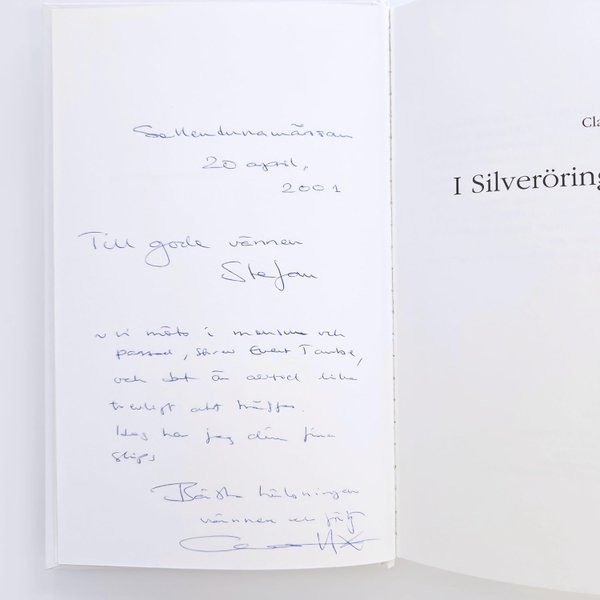 Sollentunamässan
20 april,
2001
Till gode vännen
Stefan
~ vi möts i monsun och
passad, skrev Evert Taube,
och det är alltid lika
trevligt att träffas.
Idag har jag din fina
slips
Bästa hälsningar
vännen och
Cla
I Silveröring